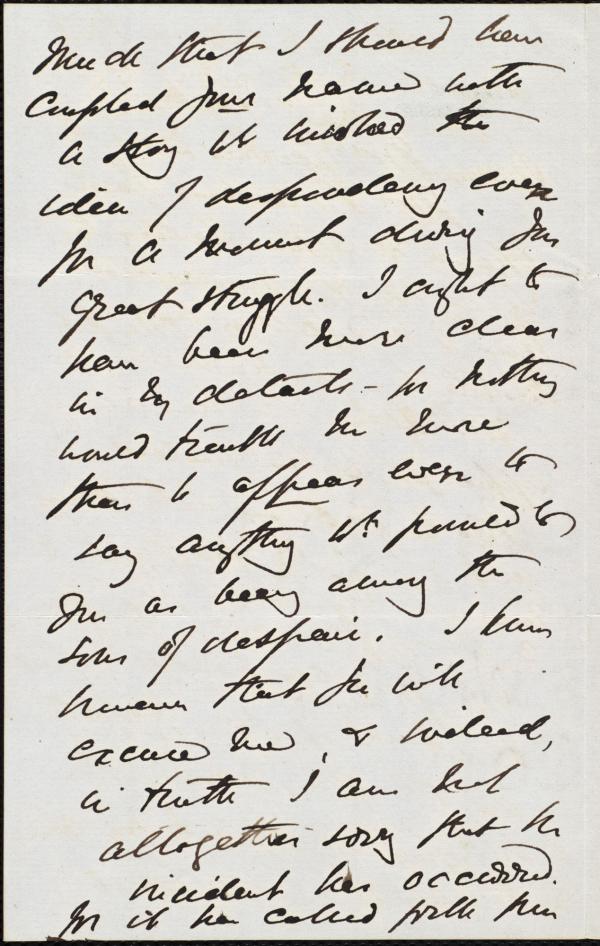 much that I should have
coupled your name with
a story wh involved the
idea of despondency even
for a moment during your
great struggle. I ought to
have been more clear
in my details – for nothing
would trouble me more
than to appear even to
say anything wh. pointed to
you as being among the
sons of despair. I know
however that you will
excuse me, & indeed,
in truth I am not
altogether sorry that the
incident has occurred.
for it has called forth from